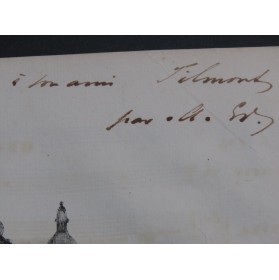 à son ami Filmont
par M. Ed.